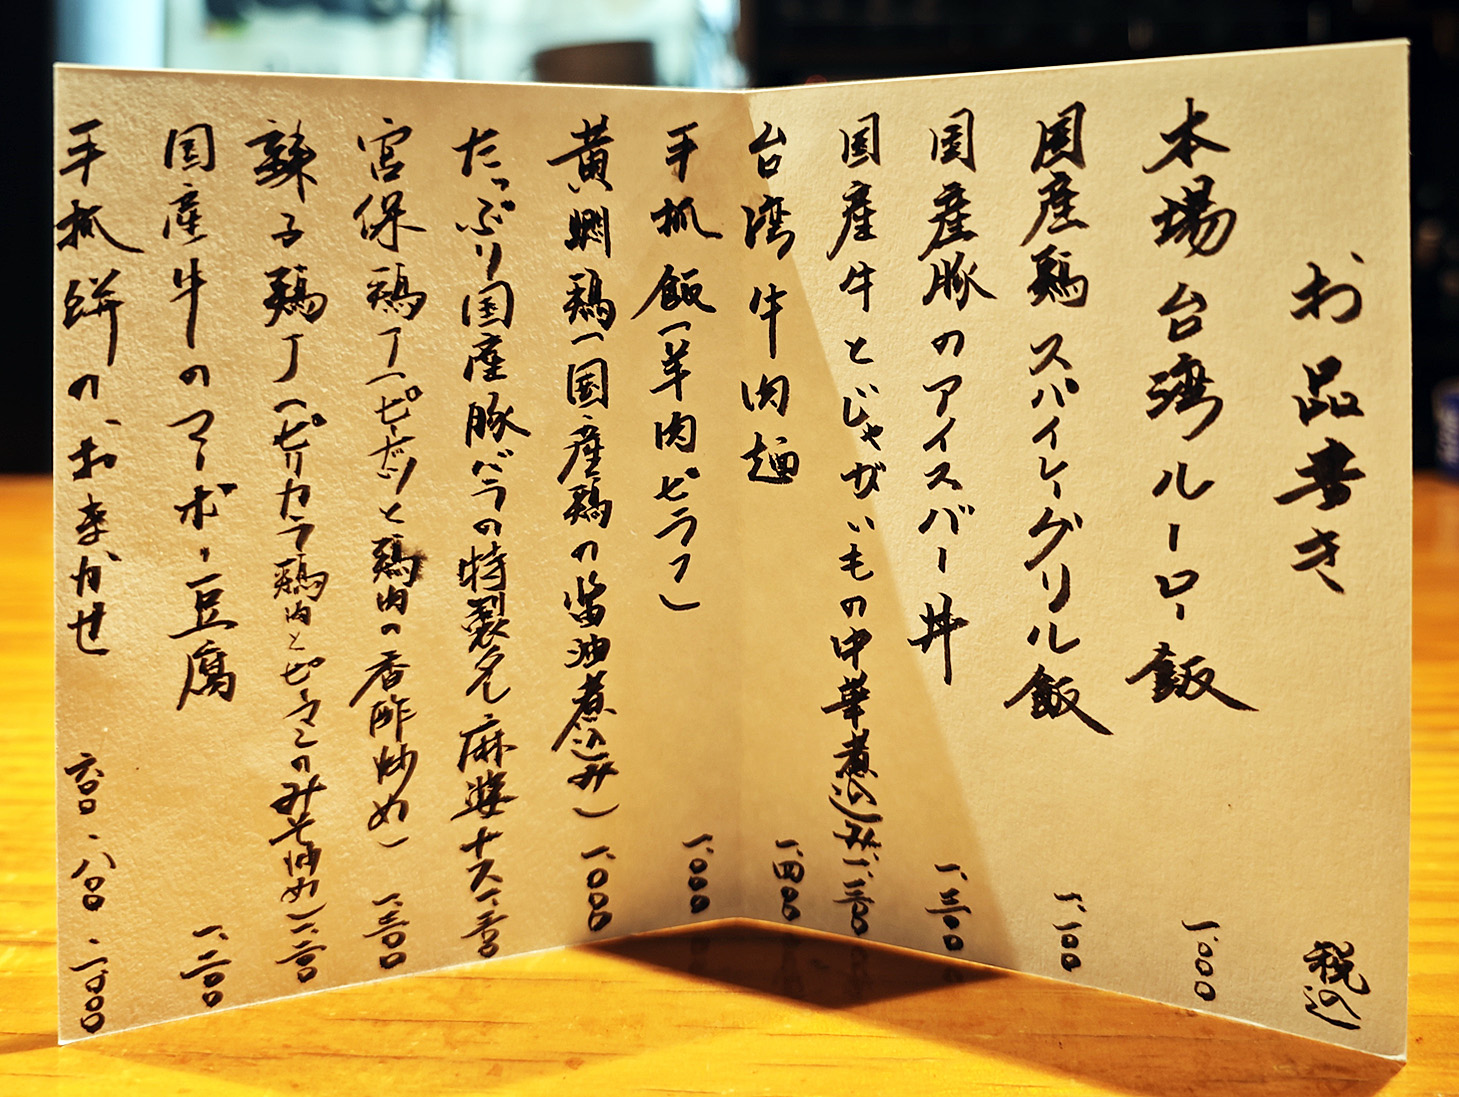 お品書き 税込
本場台湾ルーロー飯 一、〇〇〇
国産鶏スパイシーグリル飯 一、一〇〇
国産豚のアイスバー丼 一、三〇〇
国産牛とじゃがいもの中華煮込み 一、三〇〇
台湾牛肉麺 一、四〇〇
手抓飯(羊肉ピラフ) 一、〇〇〇
黄燜鶏(国産鶏の醤油煮込み) 一、〇〇〇
たっぷり国産豚バラの特製 麻婆ナス 一、三〇〇
宮保鶏丁(ピーナッツと鶏肉の香酢炒め) 一、三〇〇
辣子鶏丁(ピリカラ鶏肉とピーマンのみそ炒め) 一、二〇〇
国産牛のマーボー豆腐 一、二〇〇
手抓餅のおまかせ 六〇〇、八〇〇